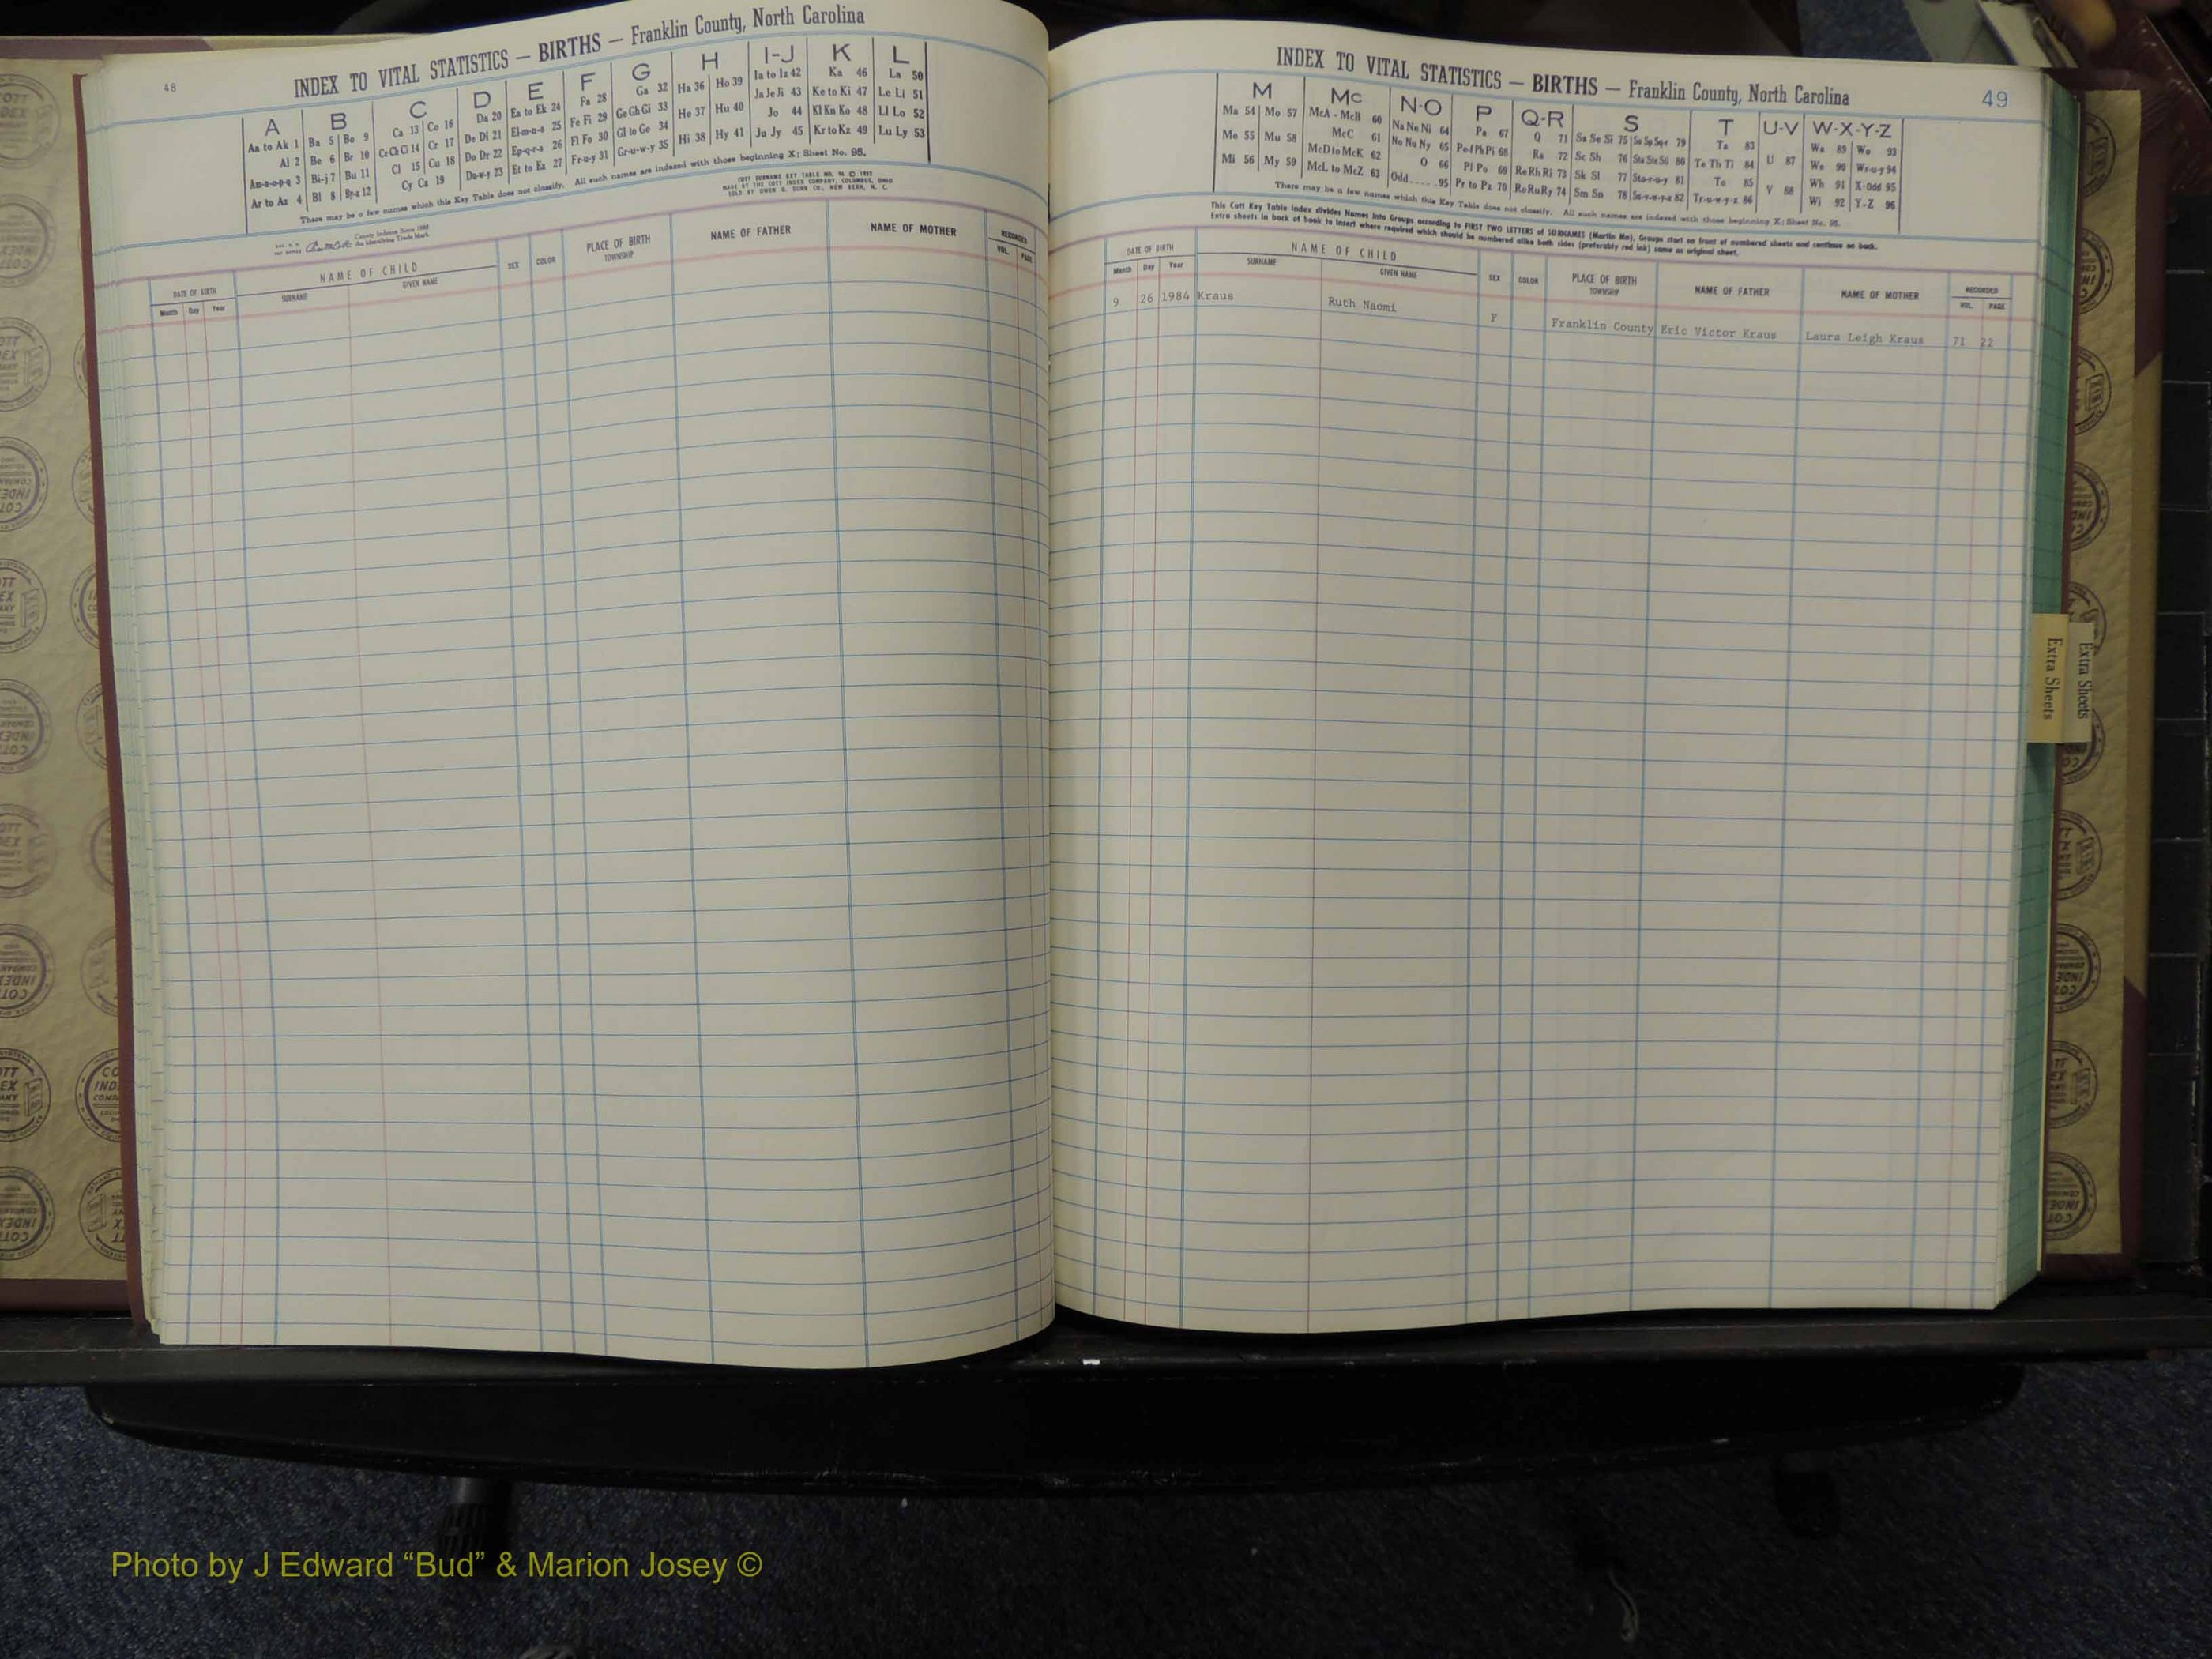 48
INDEX TO VITAL STATISTICS — BIRTHS — Franklin County, North Carolina
A B C D E F G H I-J K L
Aa to Ak 1 Ba 5 Bo 9 Ca 13 Co 16 Da 20 Ea to Ek 24 Fa 28 Ga 32 Ha 36 Ho 39 Ia to Iz 42 Ka 46 La 50
Al 2 Be 6 Br 10 Ce Ch Ci 14 Cr 17 De Di 21 El-m-n-o 25 Fe Fi 29 Ge Gh Gi 33 He 37 Hu 40 Ja Je Ji 43 Ke to Ki 47 Le Li 51
Am-n-o-p-q 3 Bi-j 7 Bu 11 Cl 15 Cu 18 Do Dr 22 Ep-q-r-s 26 Fl Fo 30 Gl to Go 34 Hi 38 Hy 41 Jo 44 Kl Kn Ko 48 Ll Lo 52
Ar to Az 4 Bl 8 By-z 12 Cy Cz 19 Du-w-y 23 Et to Ez 27 Fr-u-y 31 Gr-u-w-y 35 Ju Jy 45 Kr to Kz 49 Lu Ly 53
There may be a few names which this Key Table does not classify. All such names are indexed with those beginning X; Sheet No. 95.
COTT SURNAME KEY TABLE NO. 96 © 1955
MADE BY THE COTT INDEX COMPANY, COLUMBUS, OHIO
SOLD BY OWEN G. DUNN CO., NEW BERN, N. C.
County Indexes Since 1888
An Identifying Trade Mark
DATE OF BIRTH NAME OF CHILD SEX COLOR PLACE OF BIRTH NAME OF FATHER NAME OF MOTHER RECORDED
Month Day Year SURNAME GIVEN NAME TOWNSHIP VOL. PAGE
INDEX TO VITAL STATISTICS — BIRTHS — Franklin County, North Carolina
49
M Mc N-O P Q-R S T U-V W-X-Y-Z
Ma 54 Mo 57 McA - McB 60 Na Ne Ni 64 Pa 67 Q 71 Sa Se Si 75 So Sp Sq 79 Ta 83 U 87 Wa 89 Wo 93
Me 55 Mu 58 McC 61 No Nu Ny 65 Pe Ph Pi 68 Ra 72 Sc Sh 76 Sta Ste Sti 80 Te Th Ti 84 V 88 We 90 Wr-u-y 94
Mi 56 My 59 McD to McK 62 O 66 Pl Po 69 Re Rh Ri 73 Sk Sl 77 Sto-r-u-y 81 To 85 Wh 91 X-Odd 95
McL to McZ 63 Odd 95 Pr to Pz 70 Ro Ru Ry 74 Sm Sn 78 Su-v-w-y-z 82 Tr-u-w-y-z 86 Wi 92 Y-Z 96
There may be a few names which this Key Table does not classify. All such names are indexed with those beginning X; Sheet No. 95.
This Cott Key Table Index divides Names into Groups according to FIRST TWO LETTERS of SURNAMES (Martin Ma), Groups start on front of numbered sheets and continue on back.
Extra sheets in back of book to insert where required which should be numbered alike both sides (preferably red ink) same as original sheet.
DATE OF BIRTH NAME OF CHILD SEX COLOR PLACE OF BIRTH NAME OF FATHER NAME OF MOTHER RECORDED
Month Day Year SURNAME GIVEN NAME TOWNSHIP VOL. PAGE
9 26 1984 Kraus Ruth Naomi F Franklin County Eric Victor Kraus Laura Leigh Kraus 71 22
Extra Sheets
Extra Sheets
Photo by J Edward “Bud” & Marion Josey ©